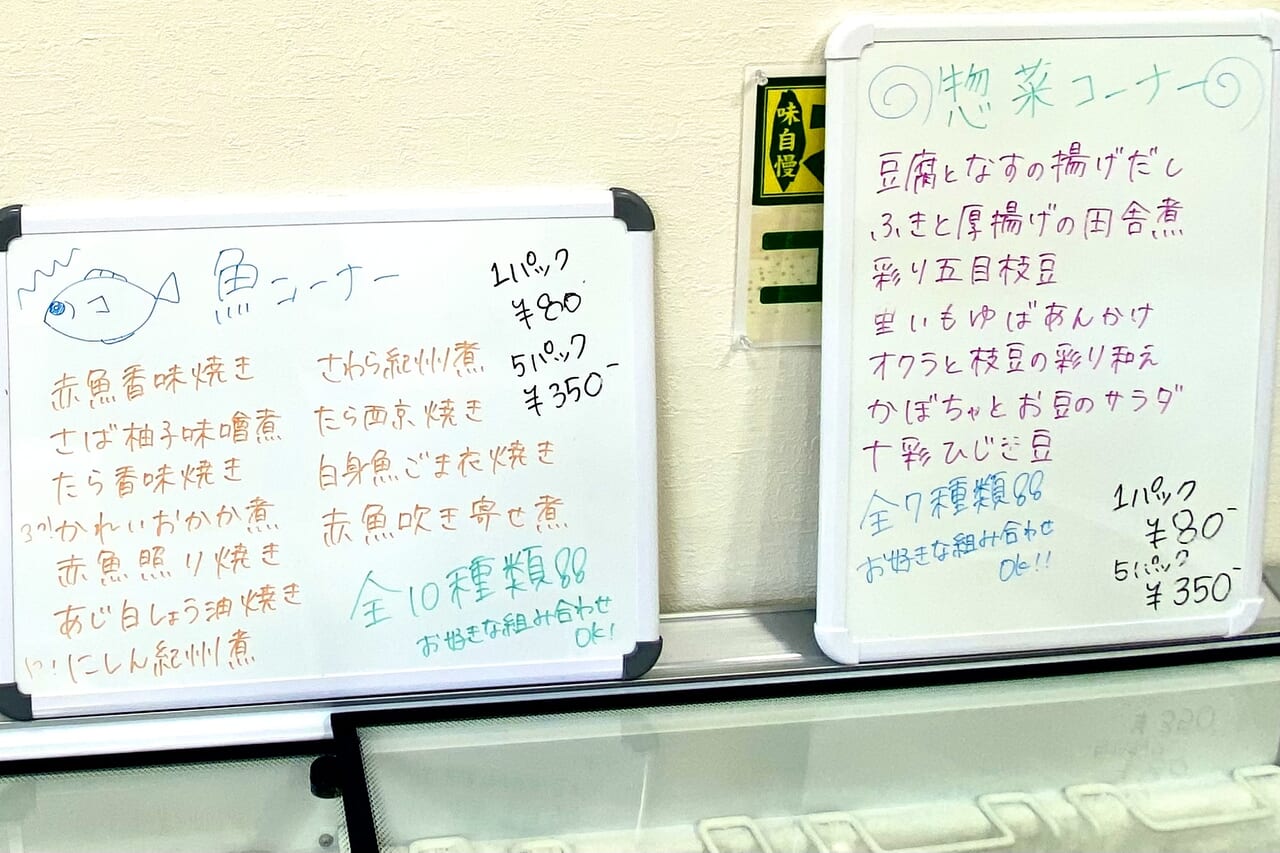 魚コーナー
コ
1パック
¥80
5パック
¥350-
赤魚香味焼き
さば柚子味噌煮
たら香味焼き
かれいおかか煮
赤魚照り焼き
あじ白しょう油焼き
にしん紀州煮
さわら紀州煮
たら西京焼き
白身魚ごま衣焼き
赤魚吹き寄せ煮
全10種類
お好きな組み合わせ
OK!
味自慢
惣菜コーナー
豆腐となすの揚げだし
ふきと厚揚げの田舎煮
彩り五目枝豆
里いもゆばあんかけ
オクラと枝豆の彩り和え
かぼちゃとお豆のサラダ
十彩ひじき豆
全7種類
お好きな組み合わせ
OK!!
1パック
¥80-
5パック
¥350-